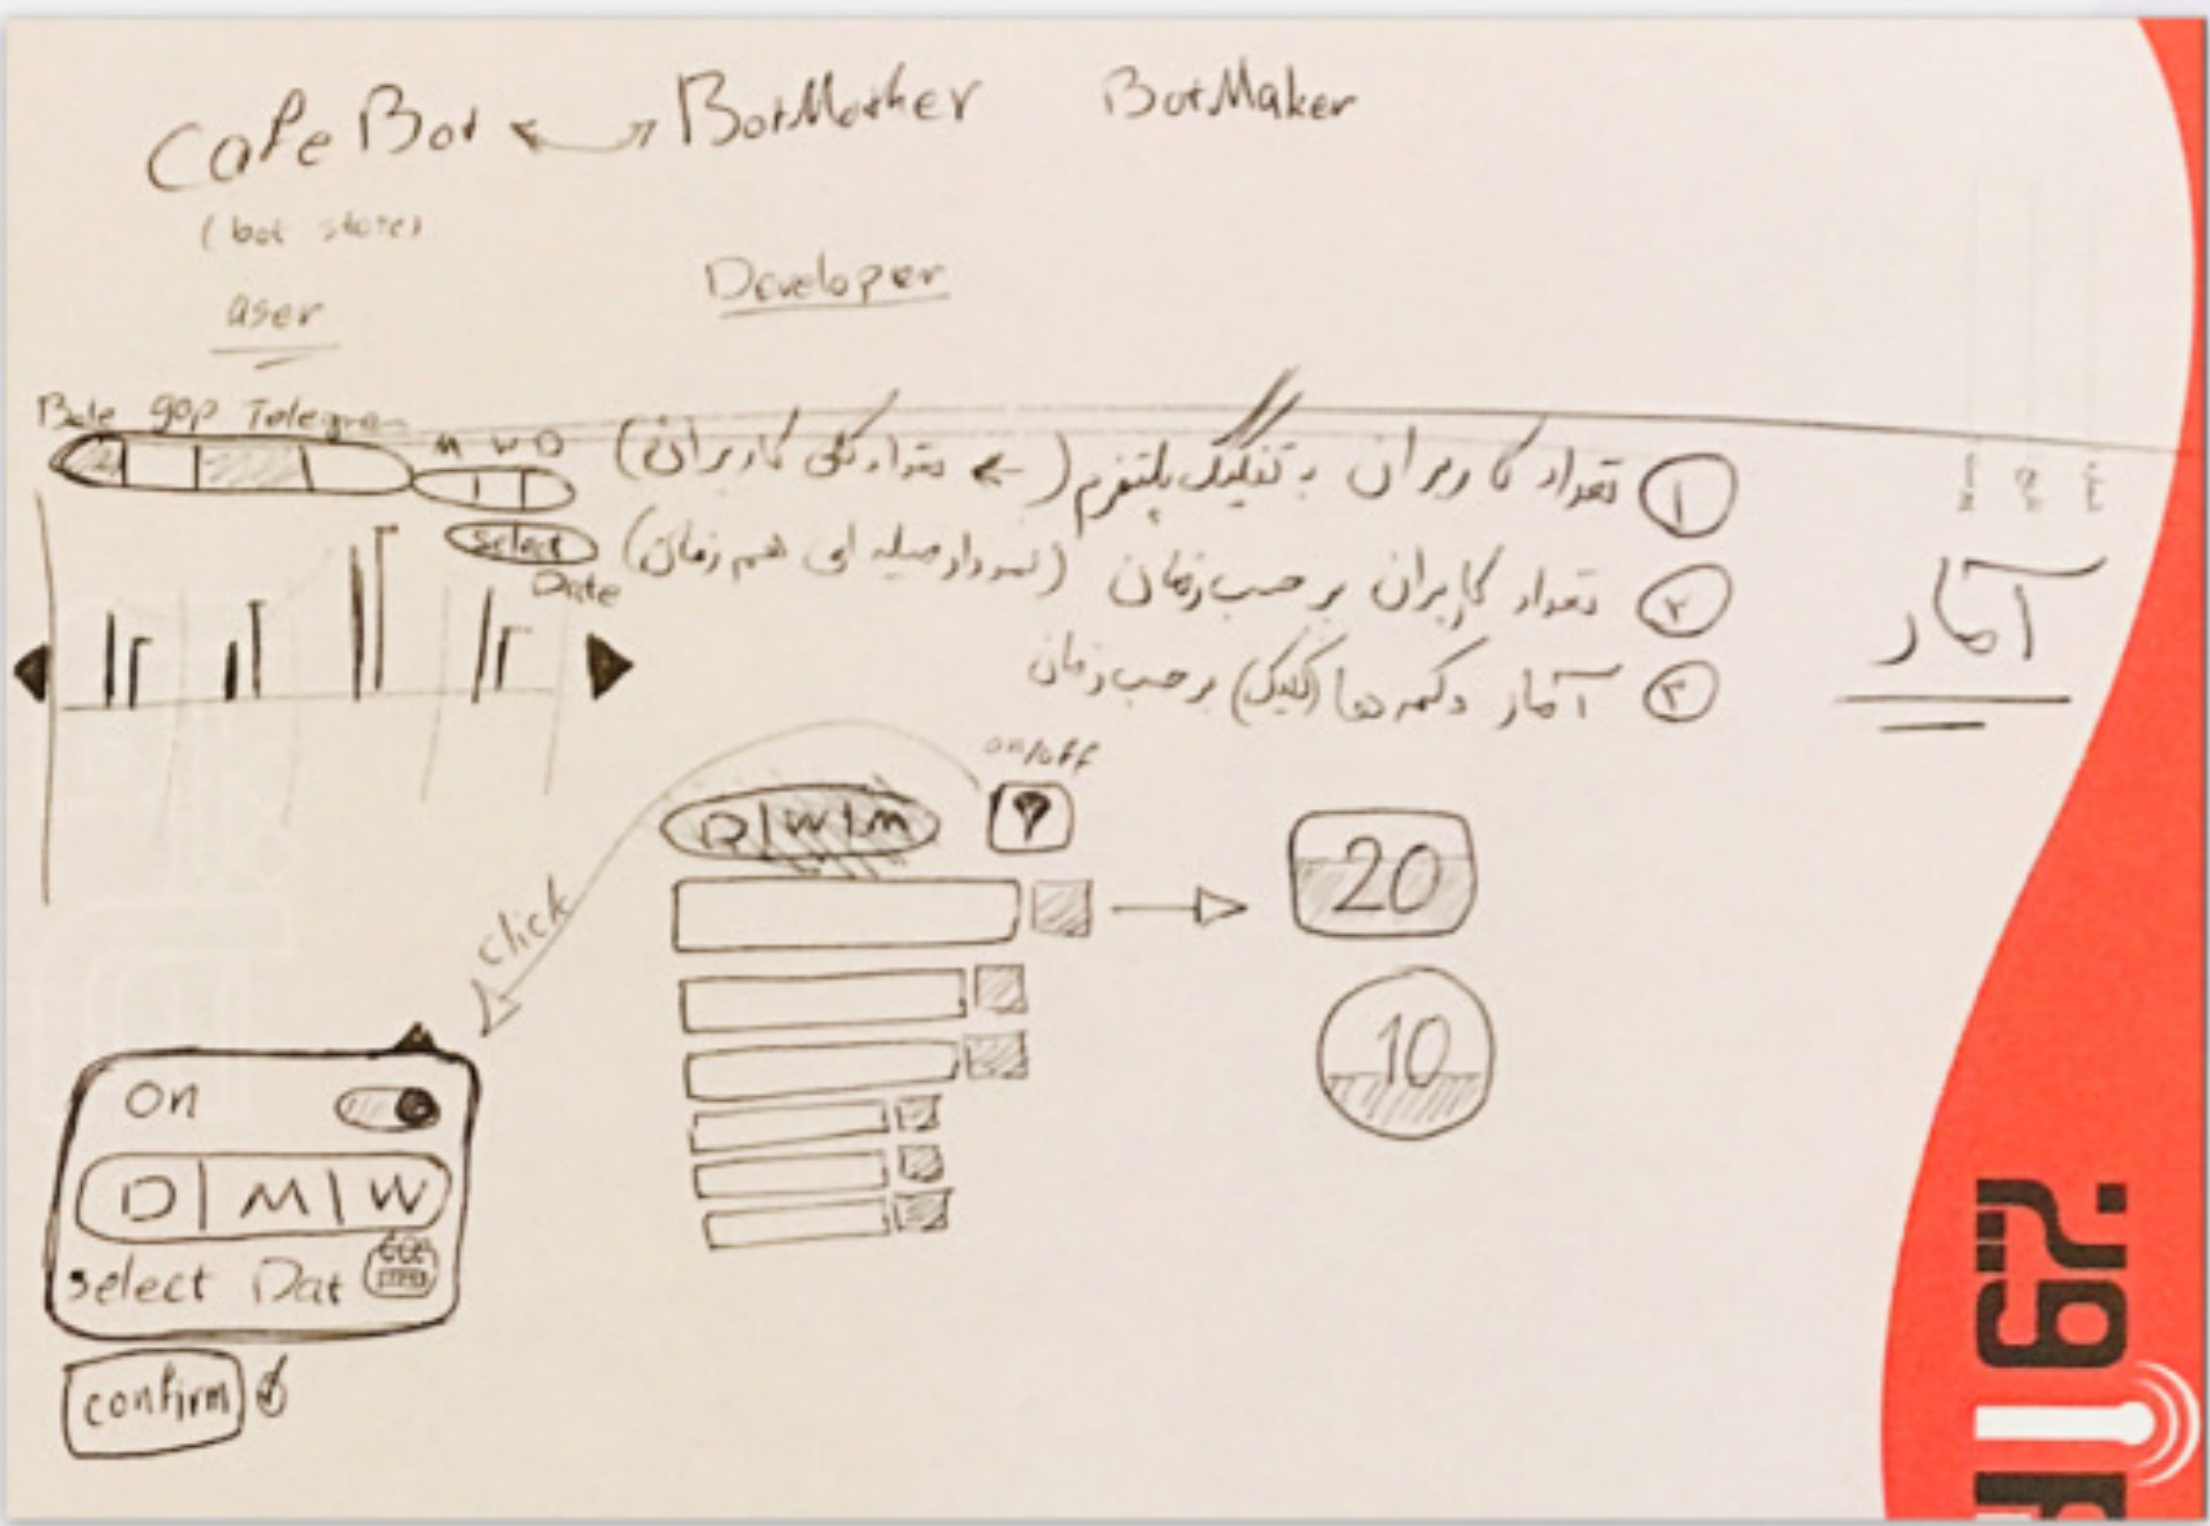 Cafe Bot BotMother BotMaker
(bot store)
Developer
user
Bale gap Telegram
M W D
Select
Date
آمار
۱ تعداد کاربران به تفکیک پلتفرم (← تعداد کل کاربران)
۲ تعداد کاربران بر حسب زمان (نمودار میله ای هم زمان)
۳ آمار دکمه ها (کلیک) بر حسب زمان
on/off
D|W|M
click
20
10
On
D|M|W
Select Dat
confirm